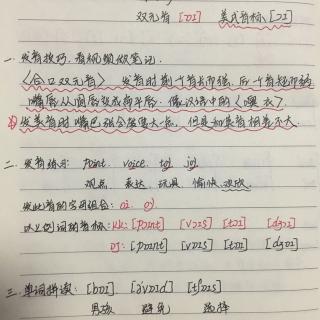 双元音 [ɔɪ] 美式音标 [ɔɪ]
一. 发音技巧, 看视频做笔记.
<合口双元音> 发音时前个音长而强, 后一个音短而弱
嘴唇从圆唇变成扁平唇.
发美音时嘴巴张会 大一点, 但是和英音相差不大.
二. 发音练习: point. voice. toy. joy.
观点. 表达. 玩具. 愉快, 欢欣.
发此音的常用组合: oi. oy.
以上例词的音标: KK: [pɔɪnt] [vɔɪs] [tɔɪ] [dʒɔɪ]
DJ: [pɔɪnt] [vɔɪs] [tɔɪ] [dʒɔɪ]
三. 单词拼读: [bɔɪ] [ə'vɔɪd] [tʃɔɪs]
男孩 避免 选择